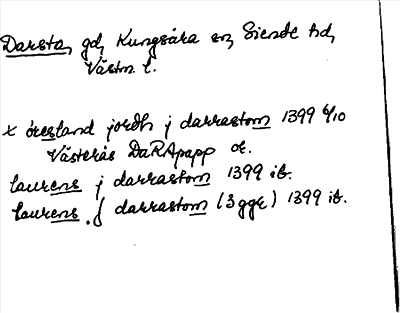 Darsta, gd, Kungsåra sn, Siende hd,
Västm. l.
x öresland jordh j darrastom 1399 6/10
Västerås DaRApapp or.
laurens j darrastom 1399 ib.
laurens . j darrastom (3 ggr) 1399 ib.